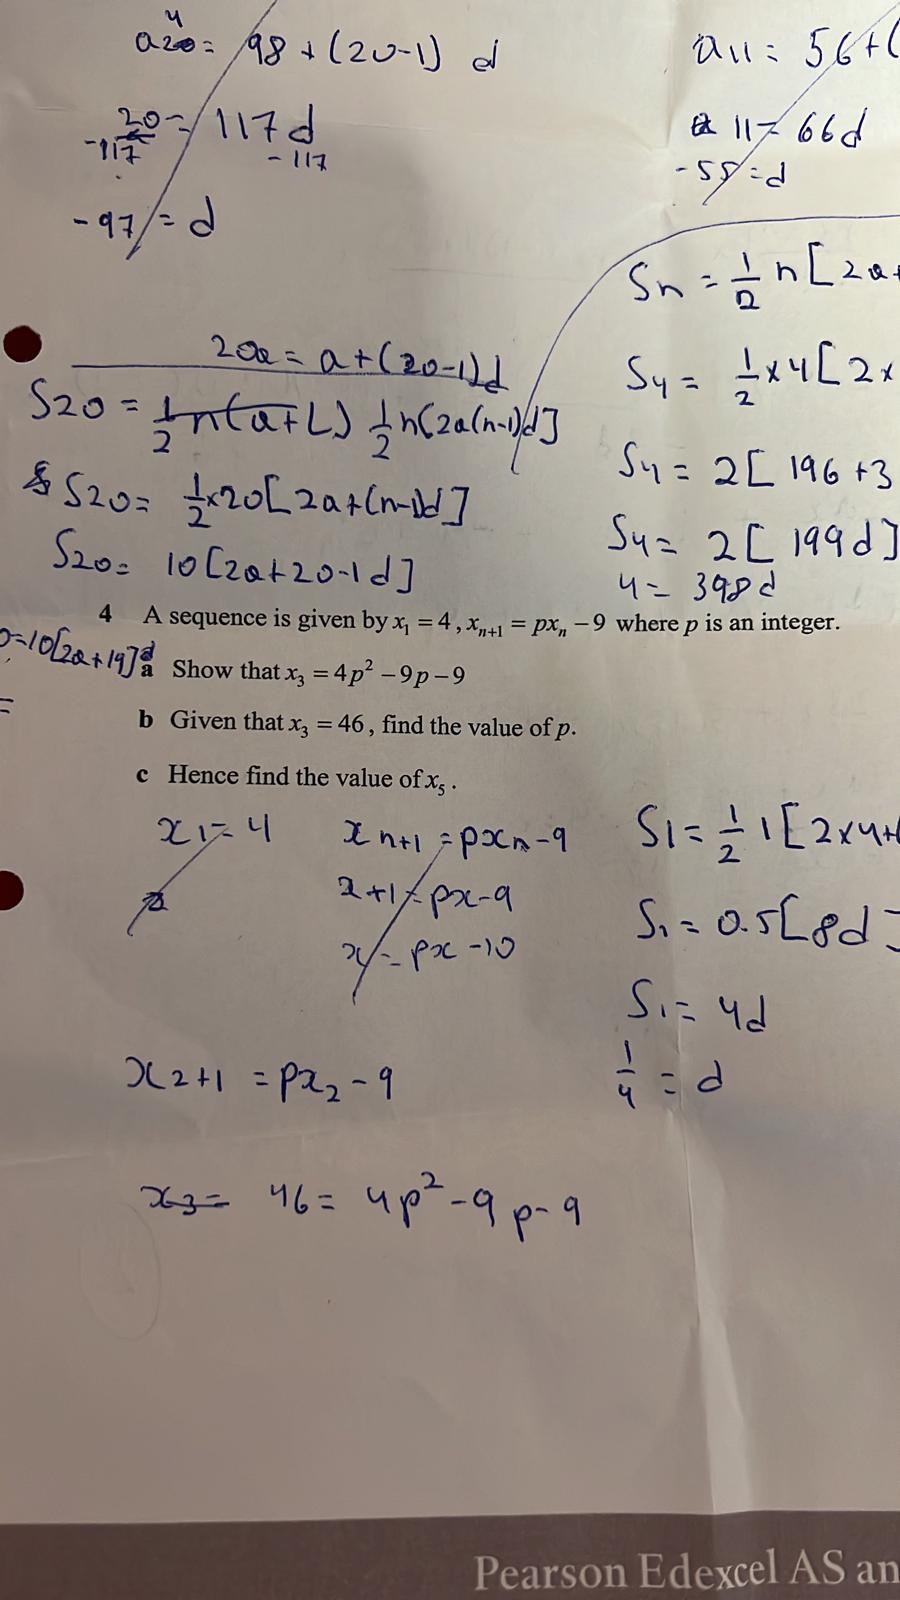 a20 = 98 + (20-1) d
20 = 117d
-117 -117
-97 = d
a11 = 56+(
11 = 66d
-55 = d
Sn = 1/2 n [2a+
S4 = 1/2 × 4 [2×
S4 = 2 [ 196 +3
S4 = 2 [ 199d]
4 = 398d
20a = a+(20-1)d
S20 = 1/2 n(a+L) 1/2 n(2a(n-1)d]
S20 = 1/2 × 20 [2a+(n-1)d]
S20 = 10 [2a+20-1d]
0=10[2a+19]d
=
4 A sequence is given by x₁ = 4, xₙ₊₁ = pxₙ − 9 where p is an integer.
a Show that x₃ = 4p² − 9p − 9
b Given that x₃ = 46, find the value of p.
c Hence find the value of x₅.
x1 = 4
xn+1 = pxn-9
x+1 = px-9
x = px-10
S1 = 1/2 1 [2×4+(
S1 = 0.5[8d]
S1 = 4d
1/4 = d
x2+1 = px2 - 9
x3 = 46 = 4p² - 9p - 9
Pearson Edexcel AS an